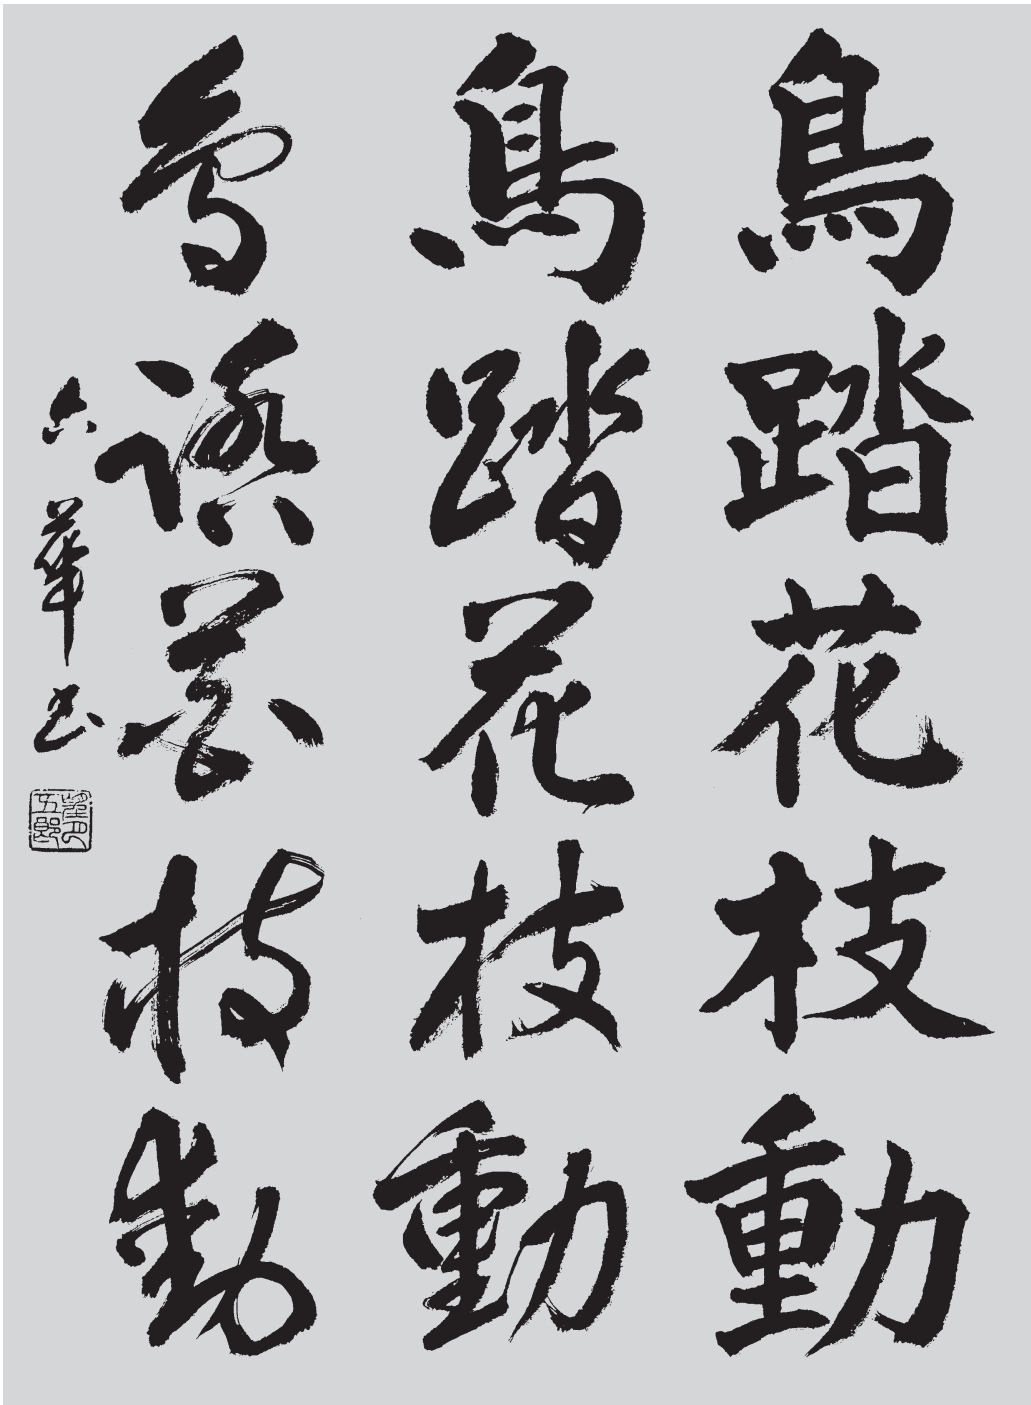 鳥踏花枝動
鳥踏花枝動
鳥踏花枝動
六華書
望月五郎